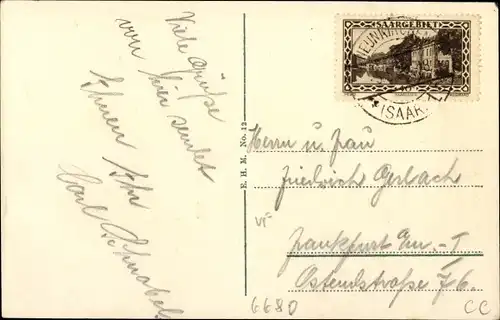 Viele Grüße
von hier sendet
Ihnen Ihr
Carl Schnabel
E. H. M. No. 12
SAARGEBIET
NEUNKIRCHEN
(SAAR)
Herrn u. Frau
Friedrich Gerlach
Frankfurt
Ostendstraße 76.
6680
CC